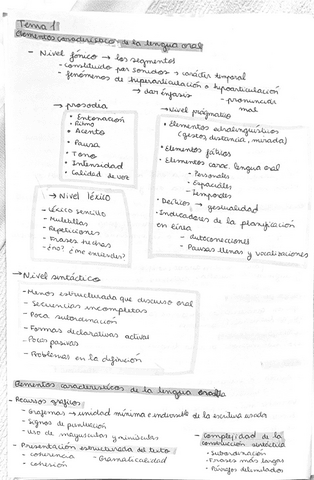 Tema 1
Elementos característicos de la lengua oral
- Nivel fónico → los segmentos
- constituido por sonidos → carácter temporal
- fenómenos de hiperarticulación o hipoarticulación
→ dar énfasis
→ pronunciar mal
→ prosodia
• Entonación
• Ritmo
• Acento
• Pausa
• Tono
• Intensidad
• Calidad de voz
→ Nivel pragmático
• Elementos extralingüísticos
(gestos, distancia, mirada)
• Elementos fáticos
• Elementos carac. lengua oral
- Personales
- Espaciales
- Temporales
- Deícticos → gestualidad
- Indicadores de la planificación
en línea
- autocorrecciones
- Pausas llenas y vocalizaciones
→ Nivel léxico
• Léxico sencillo
• Muletillas
• Repeticiones
• Frases hechas
- ¿no? ¿me entiendes?
→ Nivel sintáctico
- Menos estructurada que discurso oral
- Secuencias incompletas
- Poca subordinación
- Formas declarativas activas
- Pocas pasivas
- Problemas en la
Elementos característicos de la lengua
- Recursos gráficos
- Grafemas → unidad mínima e indivisible de la escritura
- Signos de puntuación
- Uso de mayúsculas y minúsculas
- Presentación estructurada del texto
- coherencia
- Gramaticalidad
- cohesión
- Complejidad de la
construcción sintáctica
- Subordinación
- Frases más largas
- Párrafos delimitados